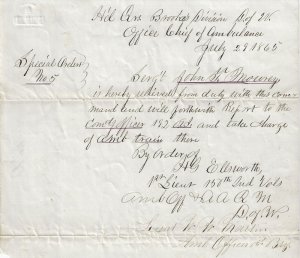 Hd Qrs Brooks's Division Dof W.
Office Chief of Ambulance
July 29 1865
Special Orders
No 5
Sergt John H Mowrey
is hereby relieved from duty with this com-
mand and will forthwith Report to the
Comdg Officer 192 and take charge
of Amb train there
By order of
Ellsworth,
1st Lieut 150th Ind Vols
Amb Off & A A Q M
D of W.
Lieut
Amb Officer